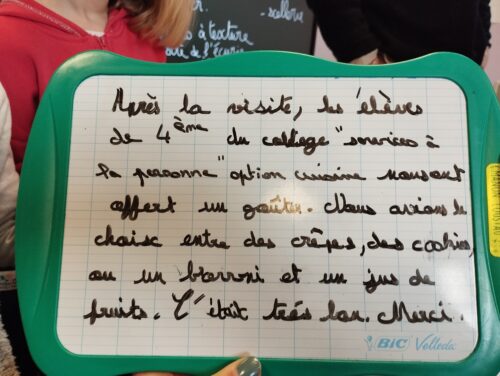 - sellerie
à texture
de l'écurie
Après la visite, les élèves
de 4ème du collège "services à
la personne" option cuisine nous ont
offert un goûter. Nous avions le
choix entre des crêpes, des cookies,
ou un brownie et un jus de
fruits. C'était très bon. Merci.
BIC Velleda